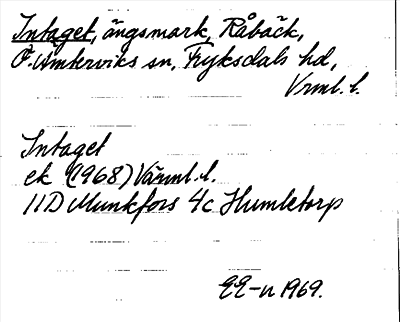 Intaget, ängsmark, Råbäck,
Ö. Ämterviks sn, Fryksdals hd,
Vrml. l.
Intaget
ek (1968) Värml. l.
11D Munkfors 4c Humletorp
EE-n 1969.